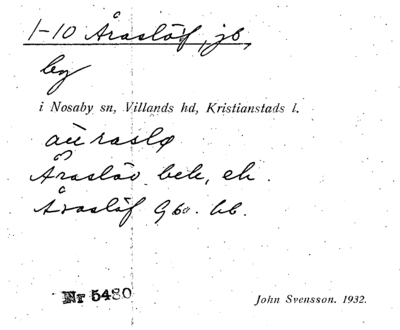 1-10 Åraslöf, jb,
by
i Nosaby sn, Villands hd, Kristianstads l.
Åraslöv bek, ek.
Åraslöf Gbo. hb.
Nr 5480
John Svensson. 1932.